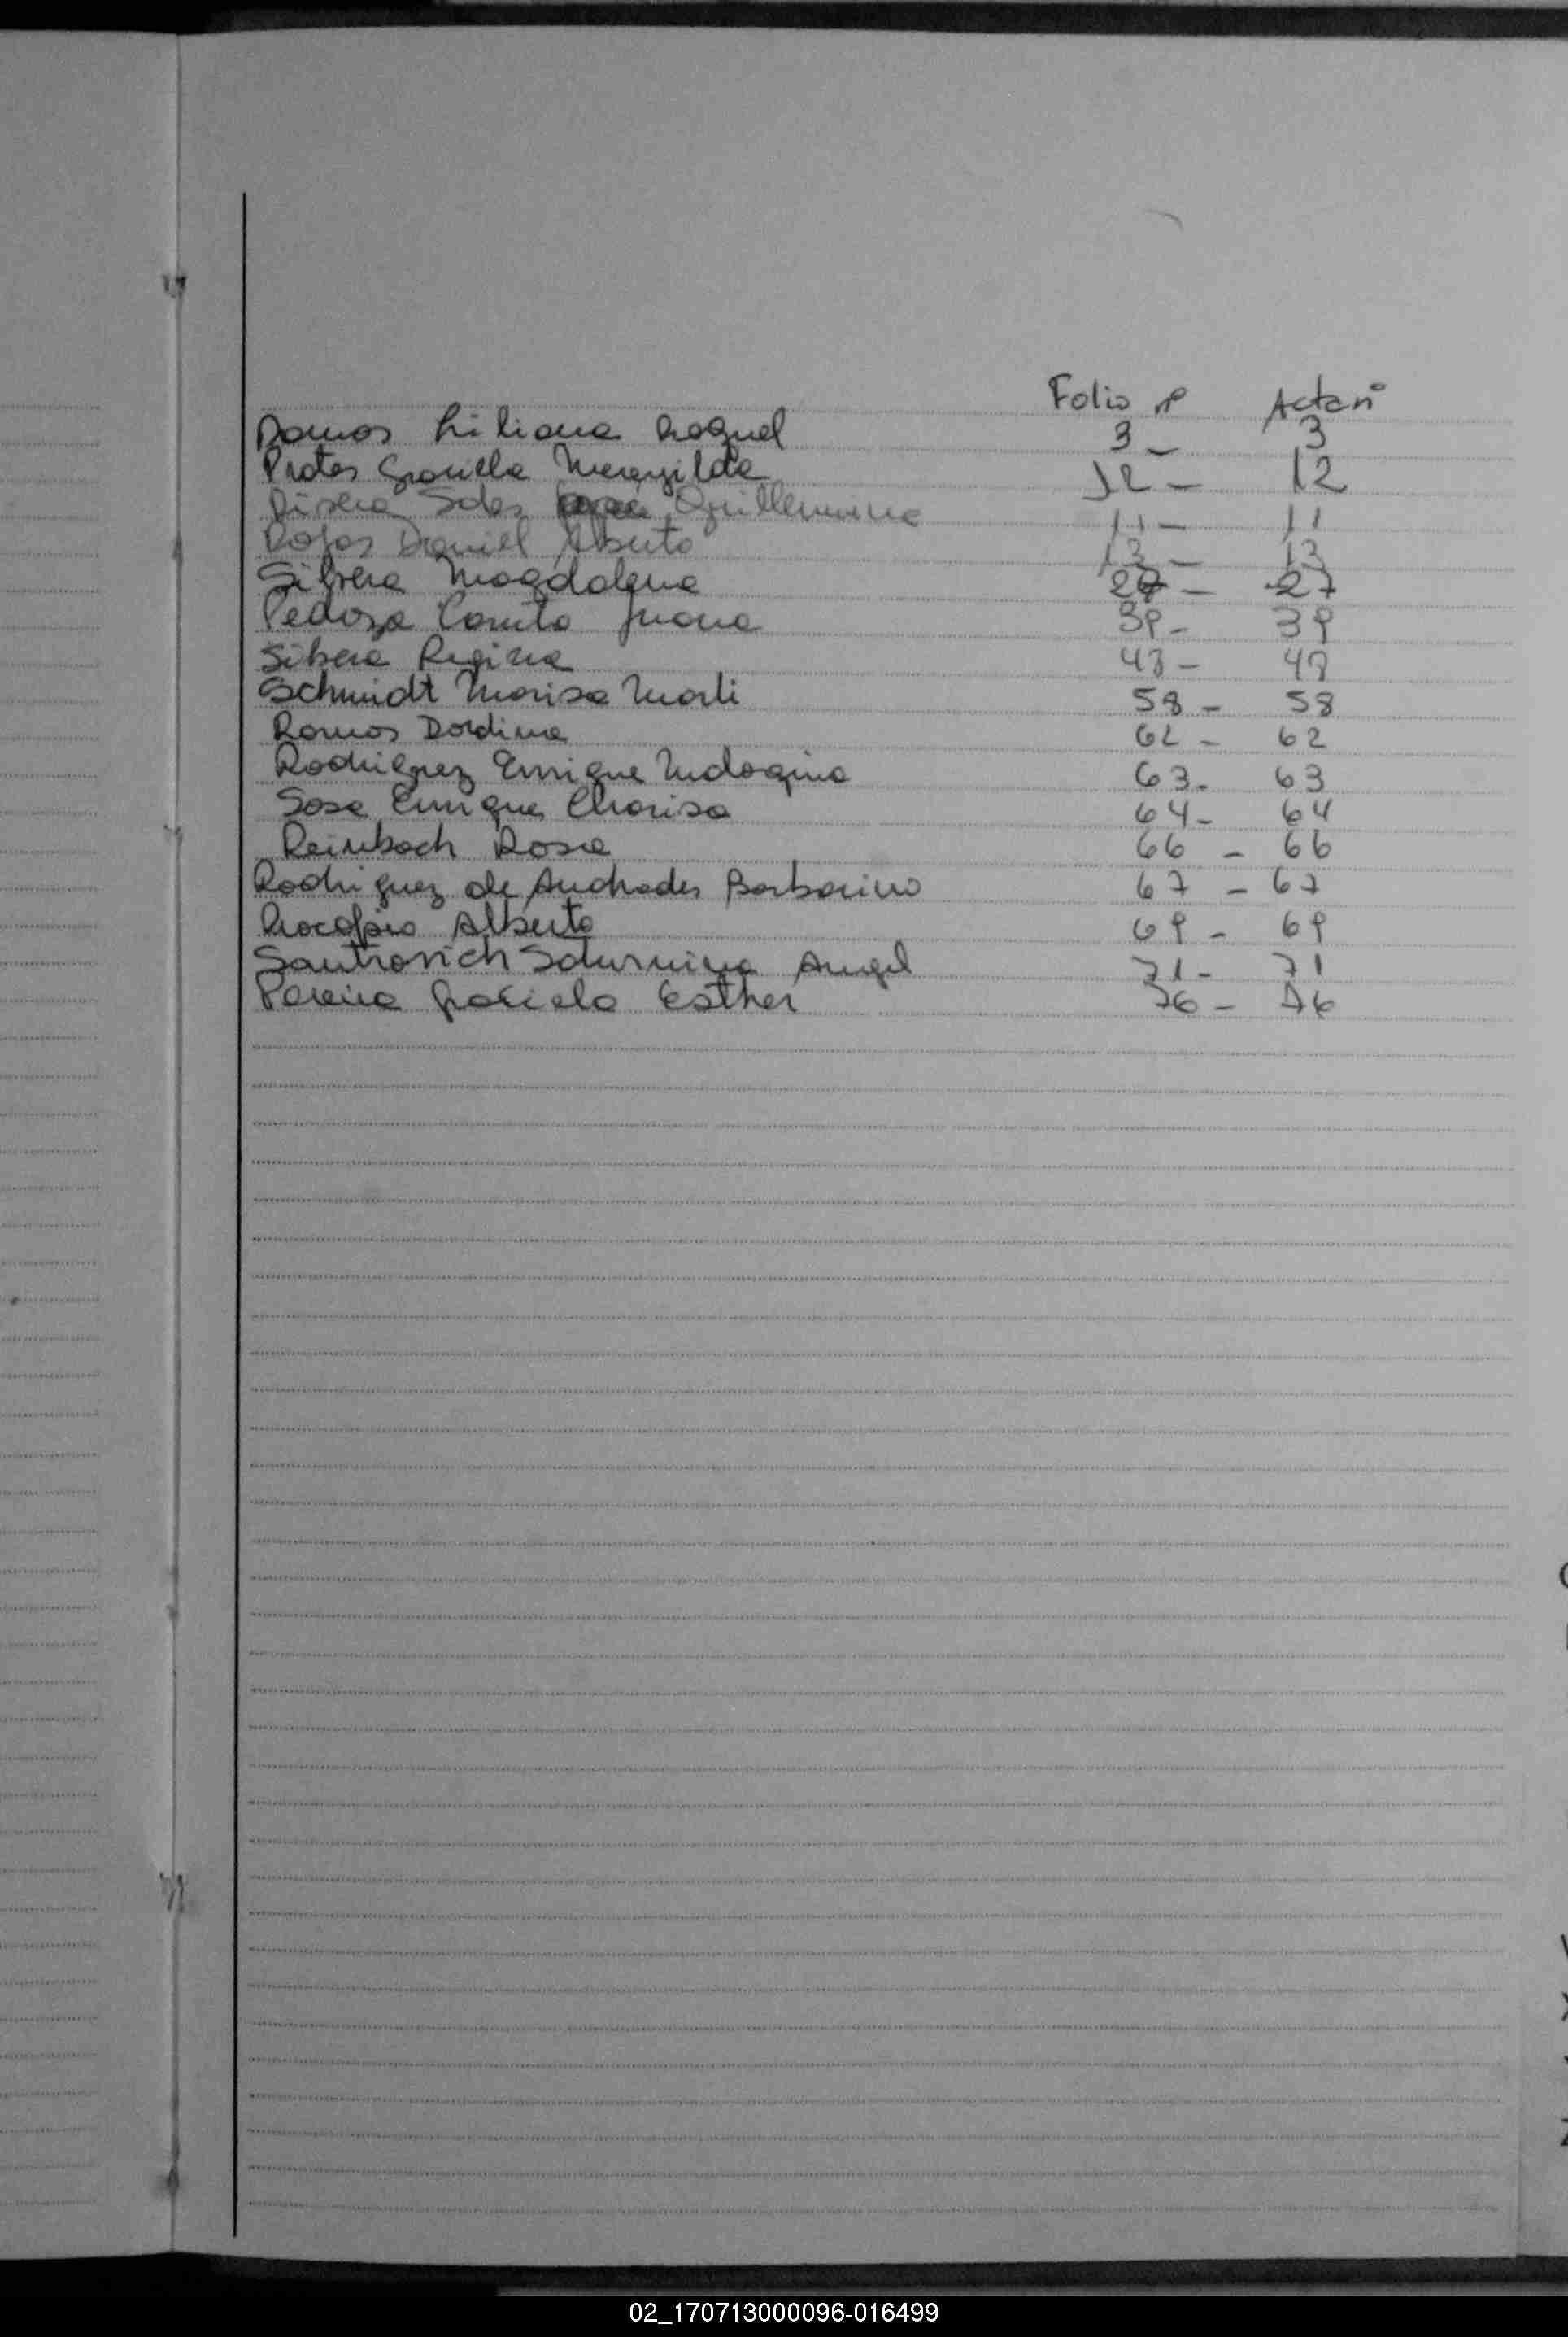 Folio nº Acta nº
Ramos Liliana Raquel 3 - 3
Prates Graciella Meregilda 12 - 12
Rivera Sales Guillermina 11 - 11
Rojas Daniel Alberto 13 - 13
Silvera Magdalena 27 - 27
Pedozo Camila Juana 39 - 39
Silvera Regina 48 - 48
Schmidt Marisa Marli 58 - 58
Ramos Dordina 62 - 62
Rodriguez Enrique 63 - 63
Sosa Enrique Charisa 64 - 64
Reimbach Rosa 66 - 66
Rodriguez de Andrades Barbarino 67 - 67
Procopio Alberto 69 - 69
Santrovich Saturnino Angel 71 - 71
Pereira Graciela Esther 76 - 76
02_170713000096-016499